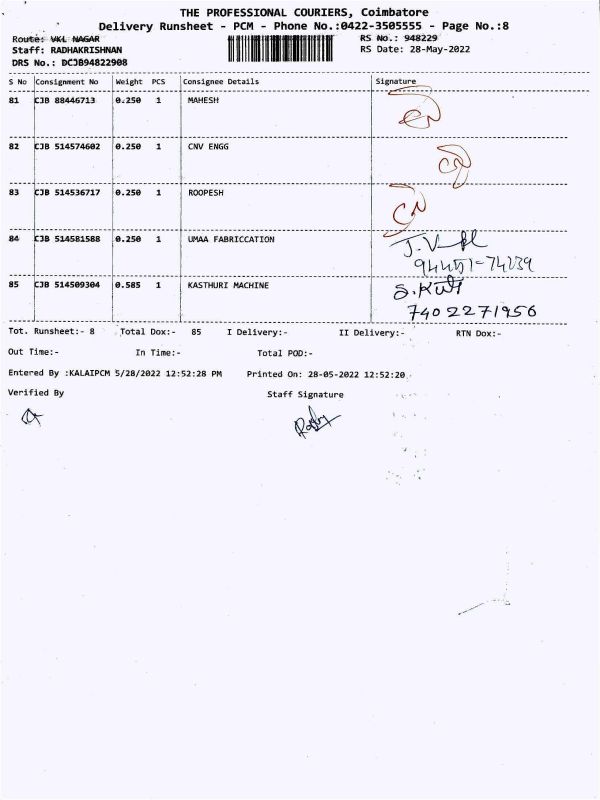 THE PROFESSIONAL COURIERS, Coimbatore
Delivery Runsheet - PCM - Phone No.:0422-3505555 - Page No.:8
Route: VKL NAGAR
RS No.: 948229
Staff: RADHAKRISHNAN
RS Date: 28-May-2022
DRS No.: DCJB94822908
S No Consignment No Weight PCS Consignee Details Signature
81 CJB 88446713 0.250 1 MAHESH
82 CJB 514574602 0.250 1 CNV ENGG
83 CJB 514536717 0.250 1 ROOPESH
84 CJB 514581588 0.250 1 UMAA FABRICCATION
94451-74239
85 CJB 514509304 0.585 1 KASTHURI MACHINE
7402271956
Tot. Runsheet:- 8 Total Dox:- 85 I Delivery:- II Delivery:- RTN Dox:-
Out Time:- In Time:- Total POD:-
Entered By :KALAIPCM 5/28/2022 12:52:28 PM Printed On: 28-05-2022 12:52:20
Verified By Staff Signature